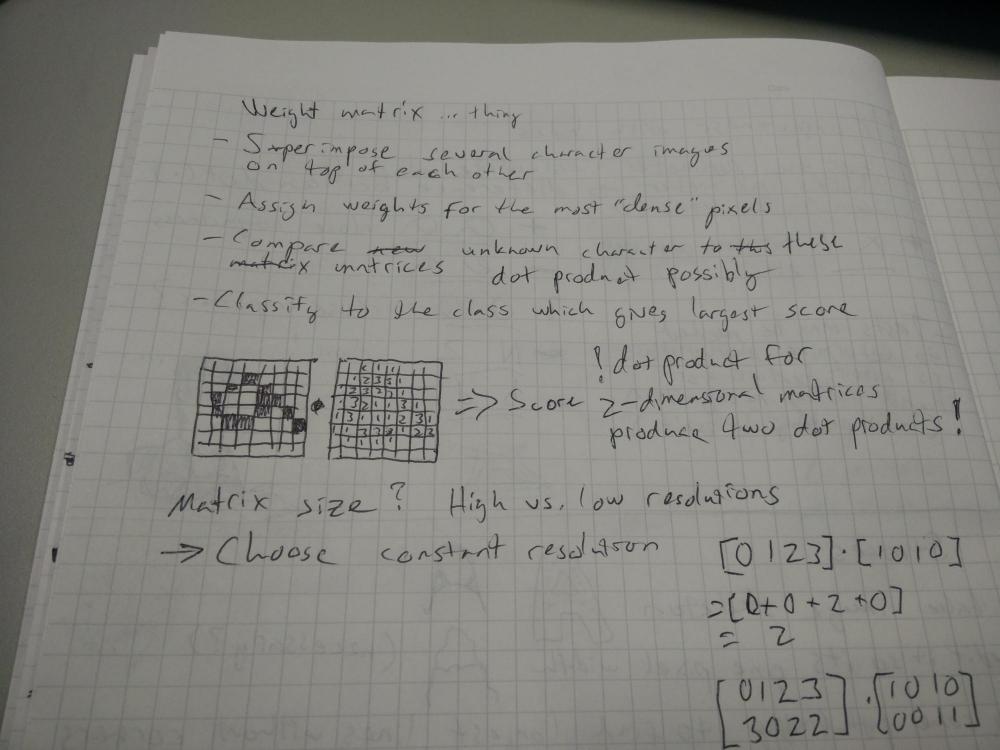 Weight matrix ... thing
- Superimpose several character images
on top of each other
- Assign weights for the most "dense" pixels
- Compare new unknown character to this these
matrix matrices dot product possibly
- Classify to the class which gives largest score
! dot product for
=> Score 2-dimensional matrices
produce two dot products!
Matrix size? High vs. low resolutions
→ Choose constant resolution
[0 1 2 3] · [1 0 1 0]
= [0+0+2+0]
= 2
[0 1 2 3] · [1 0 1 0]
[3 0 2 2] [0 0 1 1]